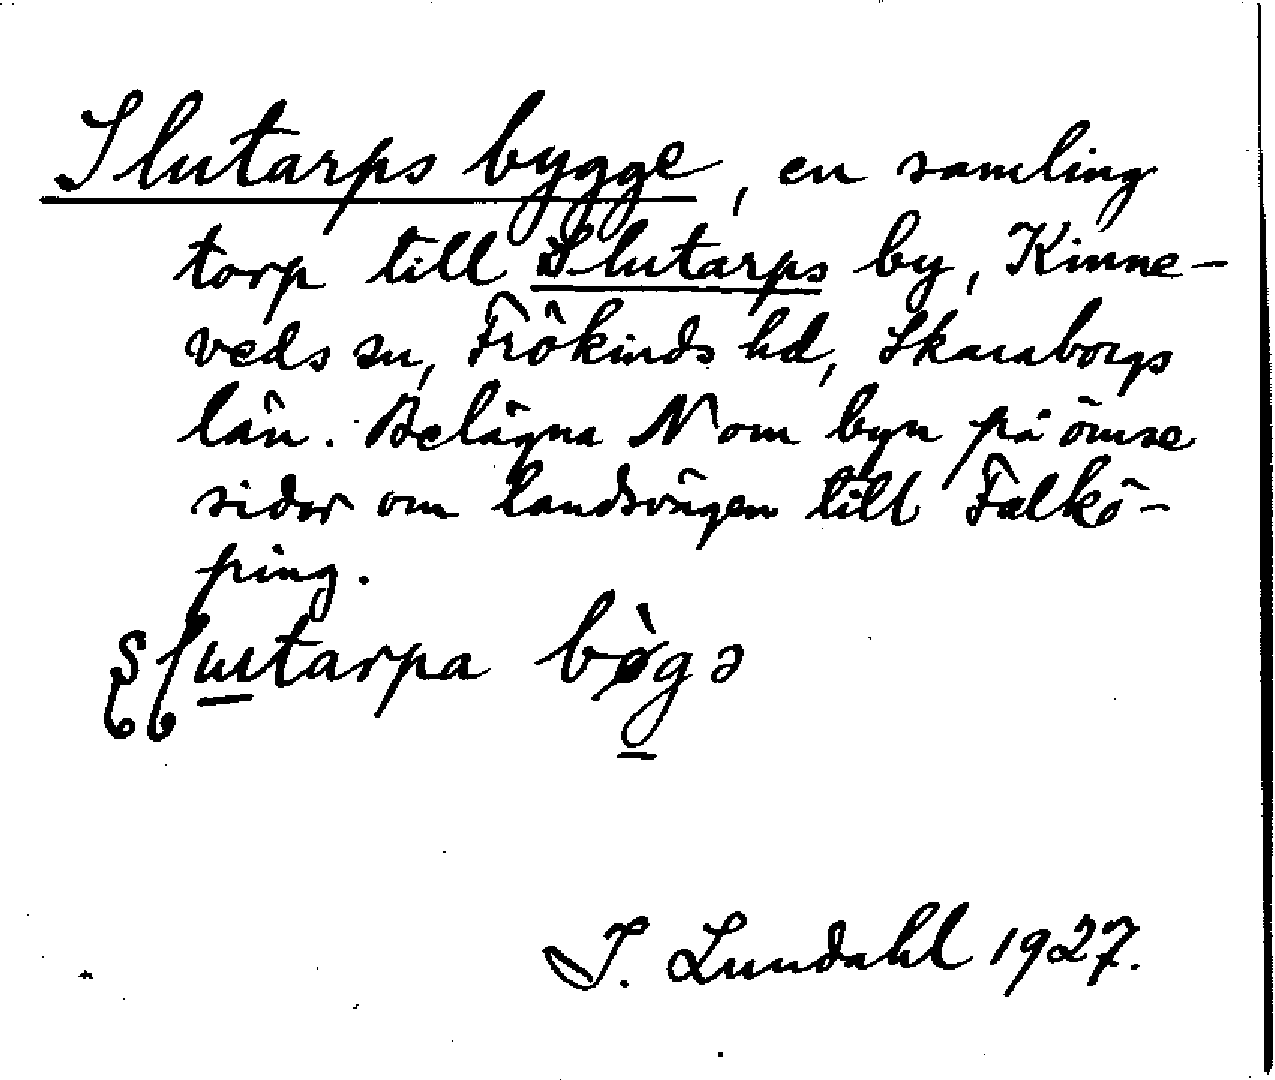 Slutarps bygge, en samling
torp till Slutarps by, Kinne-
veds sn, Frökinds hd, Skaraborgs
län. Belägna N om byn på ömse
sidor om landsvägen till Falkö-
ping.
tarpa
I. Lundahl 1927.